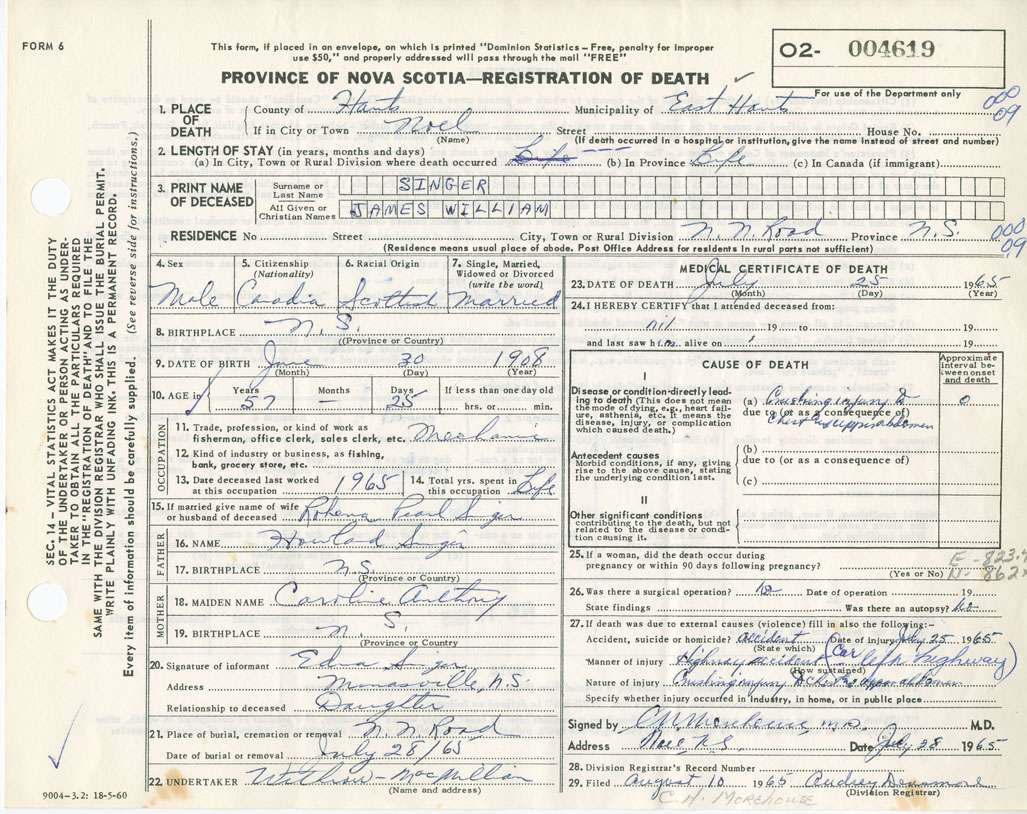 FORM 6
This form, if placed in an envelope, on which is printed "Dominion Statistics – Free, penalty for improper
use $50," and properly addressed will pass through the mail "FREE"
PROVINCE OF NOVA SCOTIA—REGISTRATION OF DEATH ✓
O2- 004619
For use of the Department only
000
09
1. PLACE OF DEATH County of Hants Municipality of East Hants
If in City or Town Noel Street House No.
(Name) (If death occurred in a hospital or institution, give the name instead of street and number)
2. LENGTH OF STAY (in years, months and days)
(a) In City, Town or Rural Division where death occurred Life (b) In Province Life (c) In Canada (if immigrant)
3. PRINT NAME OF DECEASED Surname or Last Name SINGER
All Given or Christian Names JAMES WILLIAM
RESIDENCE No Street City, Town or Rural Division N. N. Road Province N.S.
000
09
(Residence means usual place of abode. Post Office Address for residents in rural parts not sufficient)
4. Sex Male
5. Citizenship (Nationality) Canadia
6. Racial Origin Scottish
7. Single, Married, Widowed or Divorced (write the word) Married
8. BIRTHPLACE N. S.
(Province or Country)
9. DATE OF BIRTH June 30 1908
(Month) (Day) (Year)
10. AGE in Years 57 Months — Days 25 If less than one day old hrs. or min.
OCCUPATION
11. Trade, profession, or kind of work as
fisherman, office clerk, sales clerk, etc. Mechanic
12. Kind of industry or business, as fishing,
bank, grocery store, etc.
13. Date deceased last worked at this occupation 1965 14. Total yrs. spent in this occupation Life
15. If married give name of wife or husband of deceased Rohena Pearl Singer
FATHER
16. NAME Howland Singer
17. BIRTHPLACE N.S.
(Province or Country)
MOTHER
18. MAIDEN NAME Caroline Anthony
19. BIRTHPLACE N. S.
(Province or Country)
20. Signature of informant Edna Singer
Address N.S.
Relationship to deceased Daughter
21. Place of burial, cremation or removal N. N. Road
Date of burial or removal July 28/65
22. UNDERTAKER MacMillian
(Name and address)
9004-3.2: 18-5-60
MEDICAL CERTIFICATE OF DEATH
23. DATE OF DEATH July 25 1965
(Month) (Day) (Year)
24. I HEREBY CERTIFY that I attended deceased from:
nil 19 to 19
and last saw him alive on 19
CAUSE OF DEATH
Approximate interval between onset and death
I
Disease or condition directly leading to death (This does not mean
the mode of dying, e.g., heart failure, asthenia, etc. It means the
disease, injury, or complication which caused death.)
(a) Crushing injury to 0
due to (or as a consequence of)
chest & upper abdomen
Antecedent causes
Morbid conditions, if any, giving
rise to the above cause, stating
the underlying condition last.
(b)
due to (or as a consequence of)
(c)
II
Other significant conditions
contributing to the death, but not
related to the disease or condition causing it.
25. If a woman, did the death occur during
pregnancy or within 90 days following pregnancy?
(Yes or No)
E - 823.
N - 862
26. Was there a surgical operation? no Date of operation 19
State findings Was there an autopsy? no
27. If death was due to external causes (violence) fill in also the following:–
Accident, suicide or homicide? accident Date of injury July 25 1965
(State which)
Manner of injury Highway accident (Car left highway)
(How sustained)
Nature of injury Crushing injury to Chest & upper abdomen
Specify whether injury occurred in industry, in home, or in public place
Signed by M.D. M.D.
Address Noel N.S. Date July 28 1965
28. Division Registrar's Record Number
29. Filed August 10 1965 Audrey Densmore
(Division Registrar)
C. H. MOREHOUSE
SEC. 14 – VITAL STATISTICS ACT MAKES IT THE DUTY
OF THE UNDERTAKER OR PERSON ACTING AS UNDER-
TAKER TO OBTAIN ALL THE PARTICULARS REQUIRED
IN THE "REGISTRATION OF DEATH" AND TO FILE THE
SAME WITH THE DIVISION REGISTRAR WHO SHALL ISSUE THE BURIAL PERMIT.
WRITE PLAINLY WITH UNFADING INK. THIS IS A PERMANENT RECORD.
Every item of information should be carefully supplied. (See reverse side for instructions.)